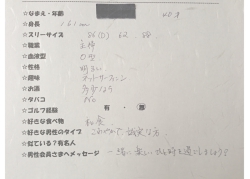 ☆なまえ・年齢 40才
☆身長 161cm
☆スリーサイズ 86(D) 62 88
☆職業 主婦
☆血液型 O型
☆性格 明るい
☆趣味 ネットサーフィン
☆お酒 多少なら
☆タバコ
☆ゴルフ経験 有・無
☆好きな食べ物 和食
☆好きな男性のタイプ 誠実な方
☆似ている?有名人
☆男性会員さまへメッセージ 一緒に楽しい時を過しましょう!